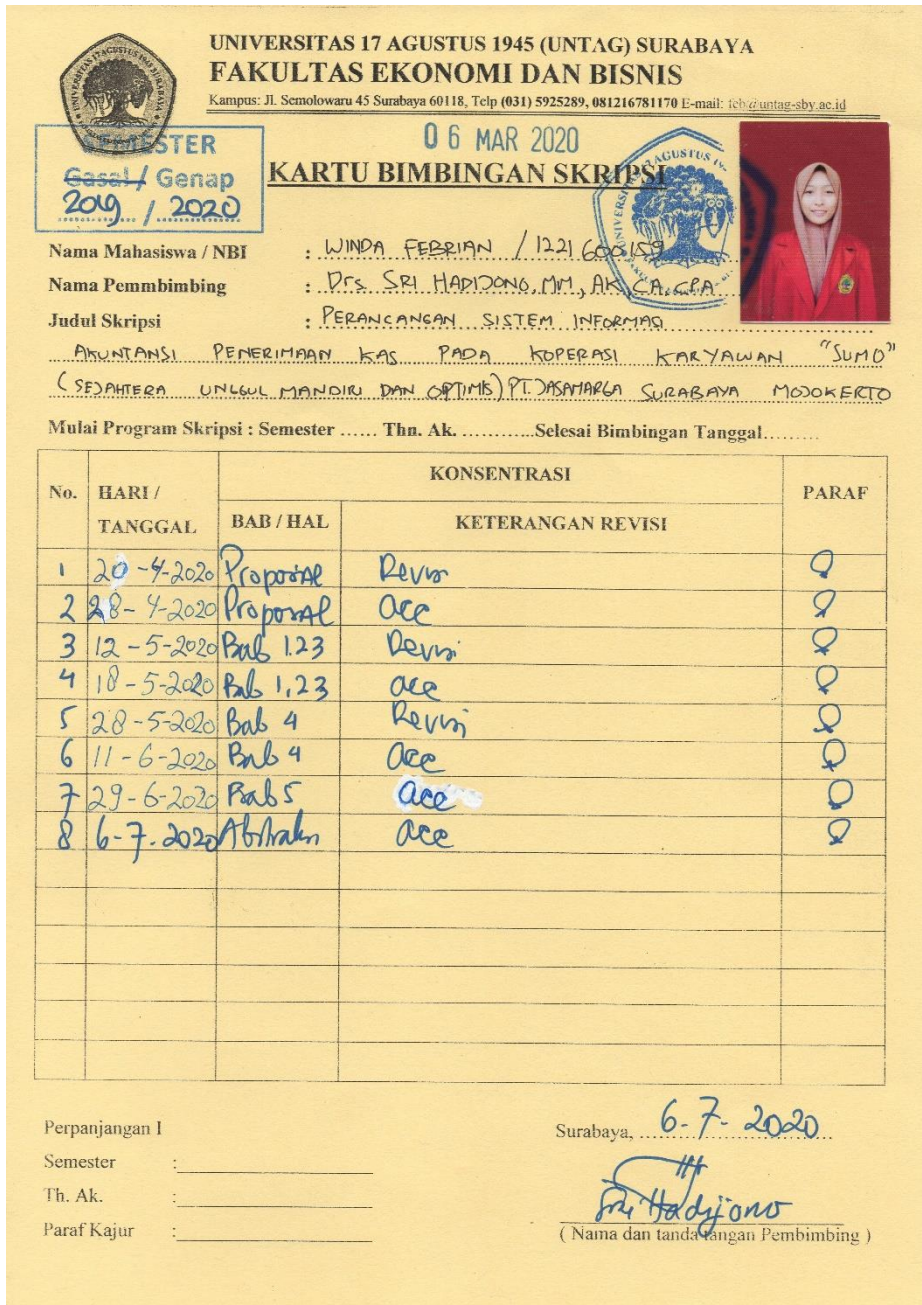 UNIVERSITAS 17 AGUSTUS 1945 (UNTAG) SURABAYA
FAKULTAS EKONOMI DAN BISNIS
Kampus: Jl. Semolowaru 45 Surabaya 60118, Telp (031) 5925289, 081216781170 E-mail: feb@untag-sby.ac.id
SEMESTER
Gasal / Genap
2019 / 2020
06 MAR 2020
KARTU BIMBINGAN SKRIPSI
Nama Mahasiswa / NBI : WINDA FEBRIAN / 1221600159
Nama Pemmbimbing : Drs SRI HADIJONO, MM, AK, CA, CPA
Judul Skripsi : PERANCANGAN SISTEM INFORMASI
AKUNTANSI PENERIMAAN KAS PADA KOPERASI KARYAWAN "SUMO"
(SEJAHTERA UNGGUL MANDIRI DAN OPTIMIS) PT. JASAMARGA SURABAYA MOJOKERTO
Mulai Program Skripsi : Semester ...... Thn. Ak. ............Selesai Bimbingan Tanggal.........
No. HARI / TANGGAL KONSENTRASI PARAF
BAB / HAL KETERANGAN REVISI
1 20-4-2020 Proposal Revisi
2 28-4-2020 Proposal acc
3 12-5-2020 Bab 1.23 Revisi
4 18-5-2020 Bab 1,23 acc
5 28-5-2020 Bab 4 Revisi
6 11-6-2020 Bab 4 acc
7 29-6-2020 Bab 5 acc
8 6-7-2020 Abstraksi acc
Perpanjangan I
Semester :
Th. Ak. :
Paraf Kajur :
Surabaya, 6-7-2020
Sri Hadijono
( Nama dan tanda tangan Pembimbing )